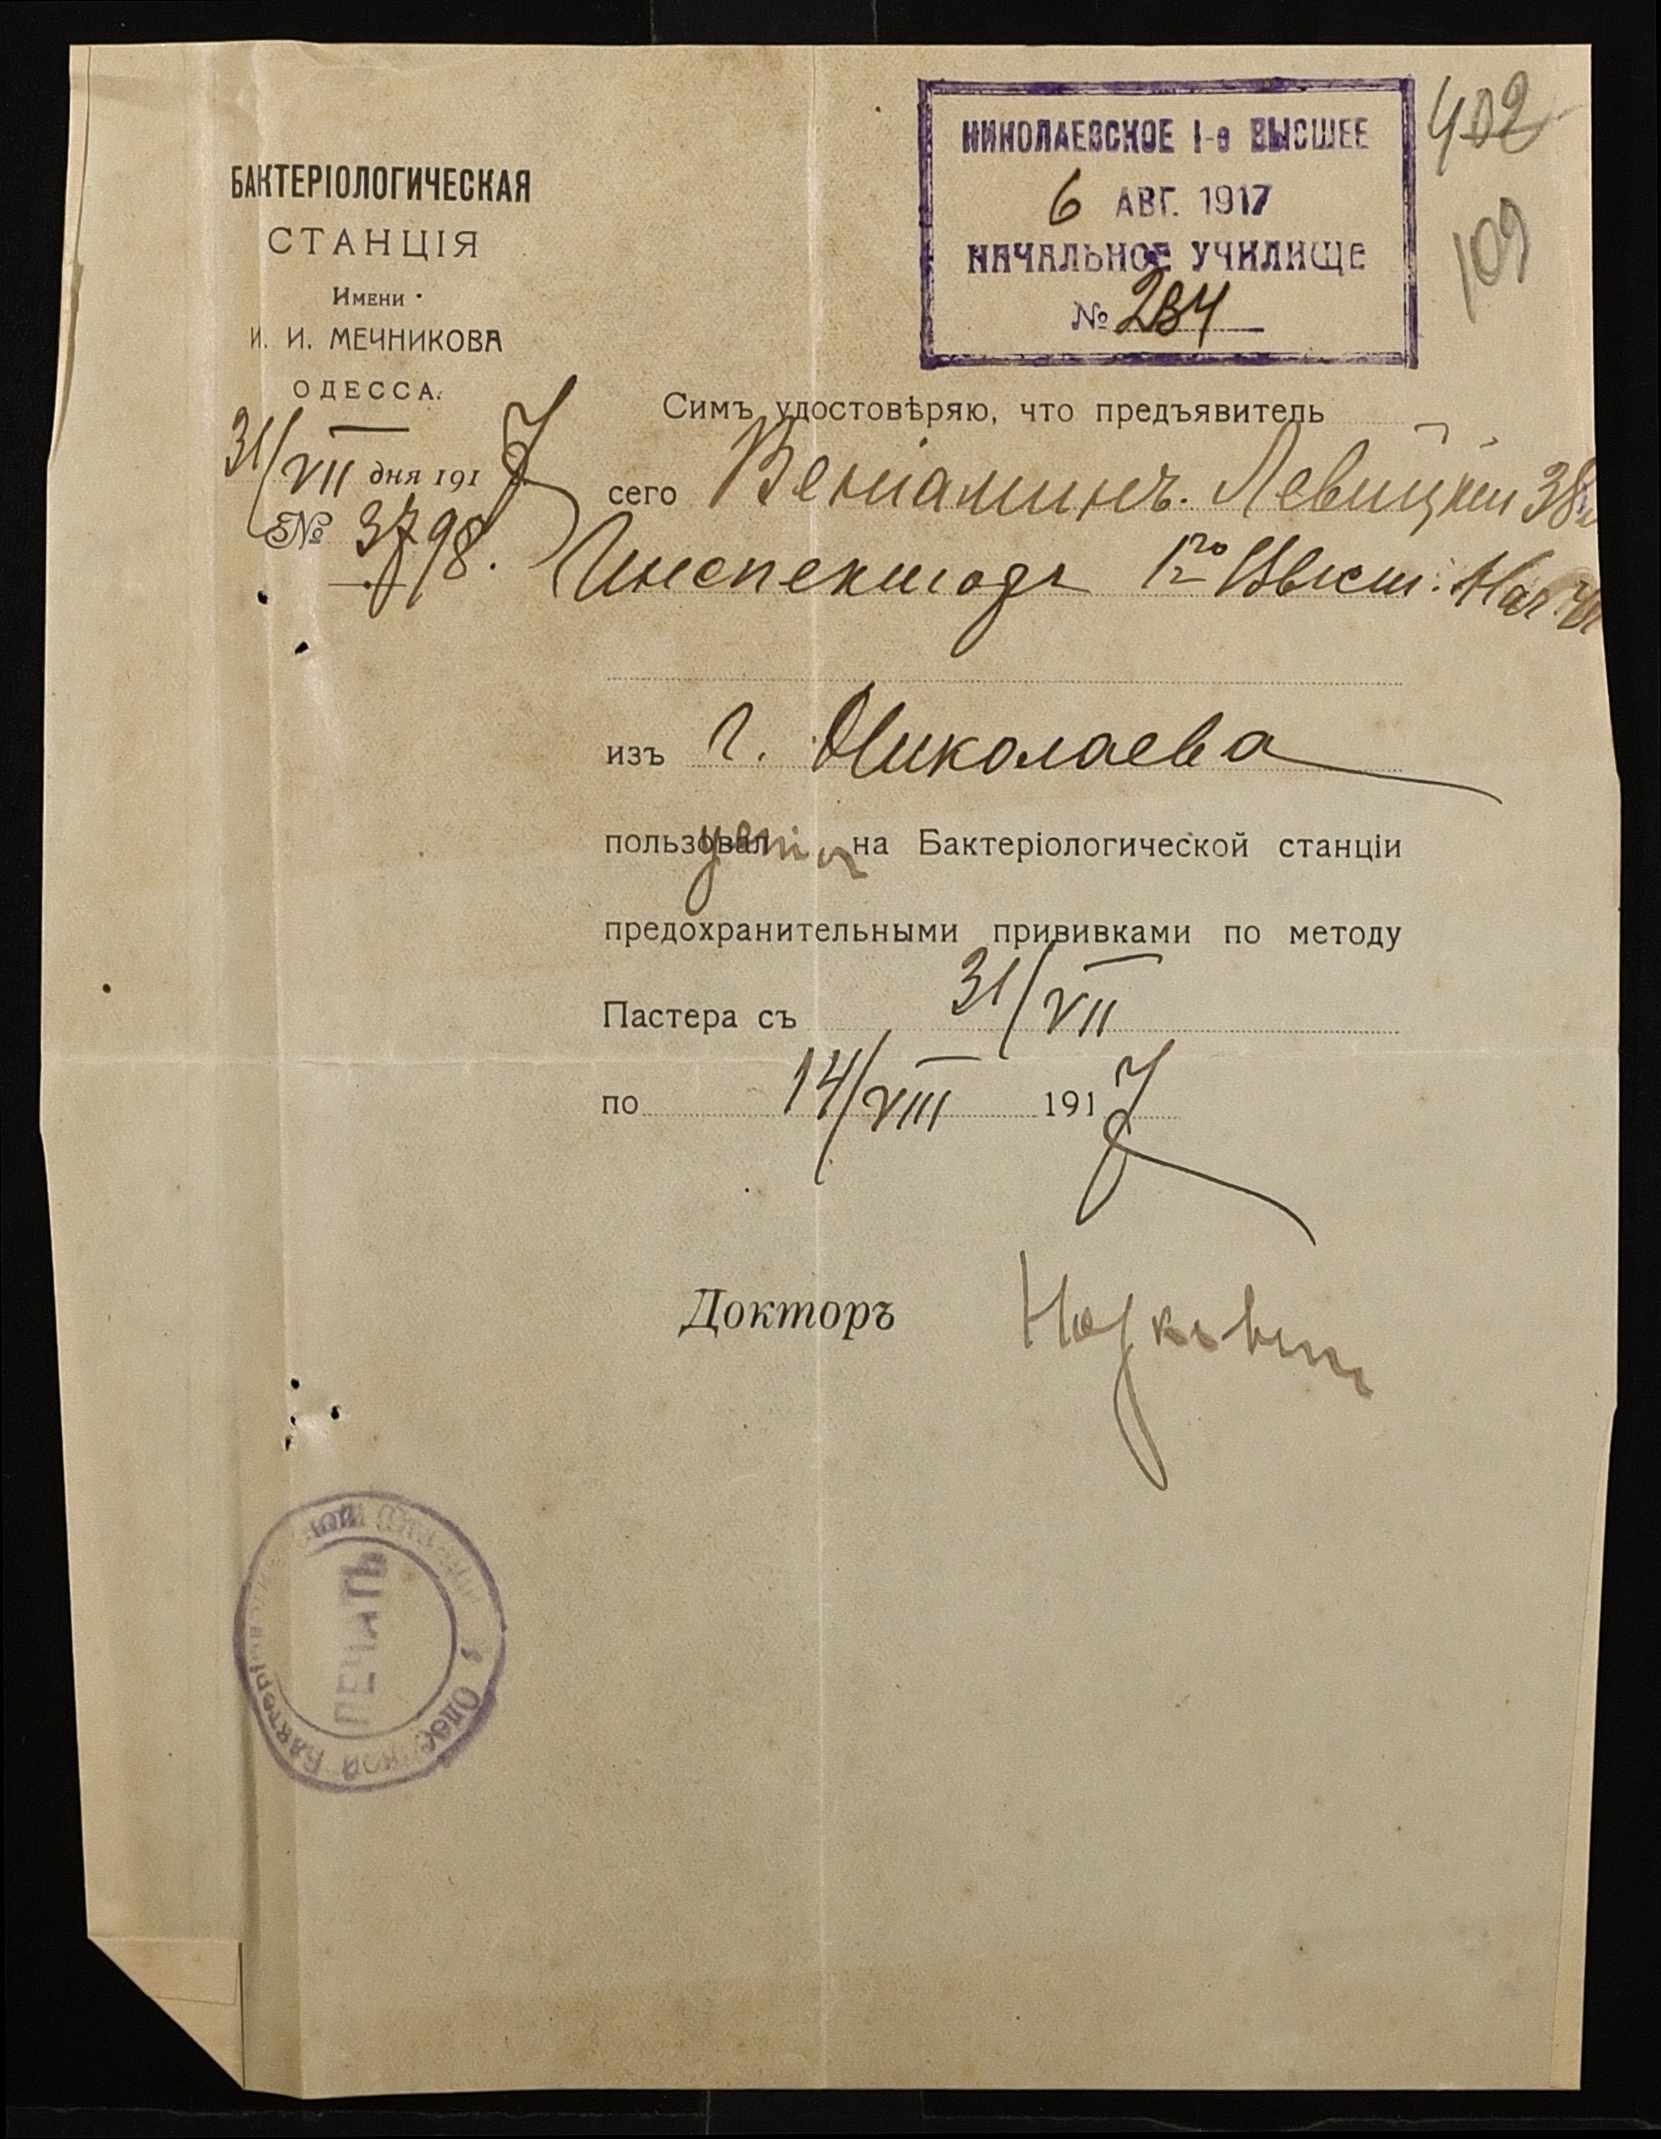 БАКТЕРІОЛОГИЧЕСКАЯ
СТАНЦІЯ
Имени
И. И. МЕЧНИКОВА
ОДЕССА.
31/VII дня 1917
№ 3798.
НИКОЛАЕВСКОЕ 1-е ВЫСШЕЕ
6 АВГ. 1917
НАЧАЛЬНОЕ УЧИЛИЩЕ
№ 234
402
109
Симъ удостовѣряю, что предъявитель
сего Веніаминъ Левицкій 38
Инспекторъ 1го Высш. Нач.
изъ г. Николаева
пользовал на Бактеріологической станціи
предохранительными прививками по методу
Пастера съ 31/VII
по 14/VIII 1917
Докторъ
ПЕЧАТЬ